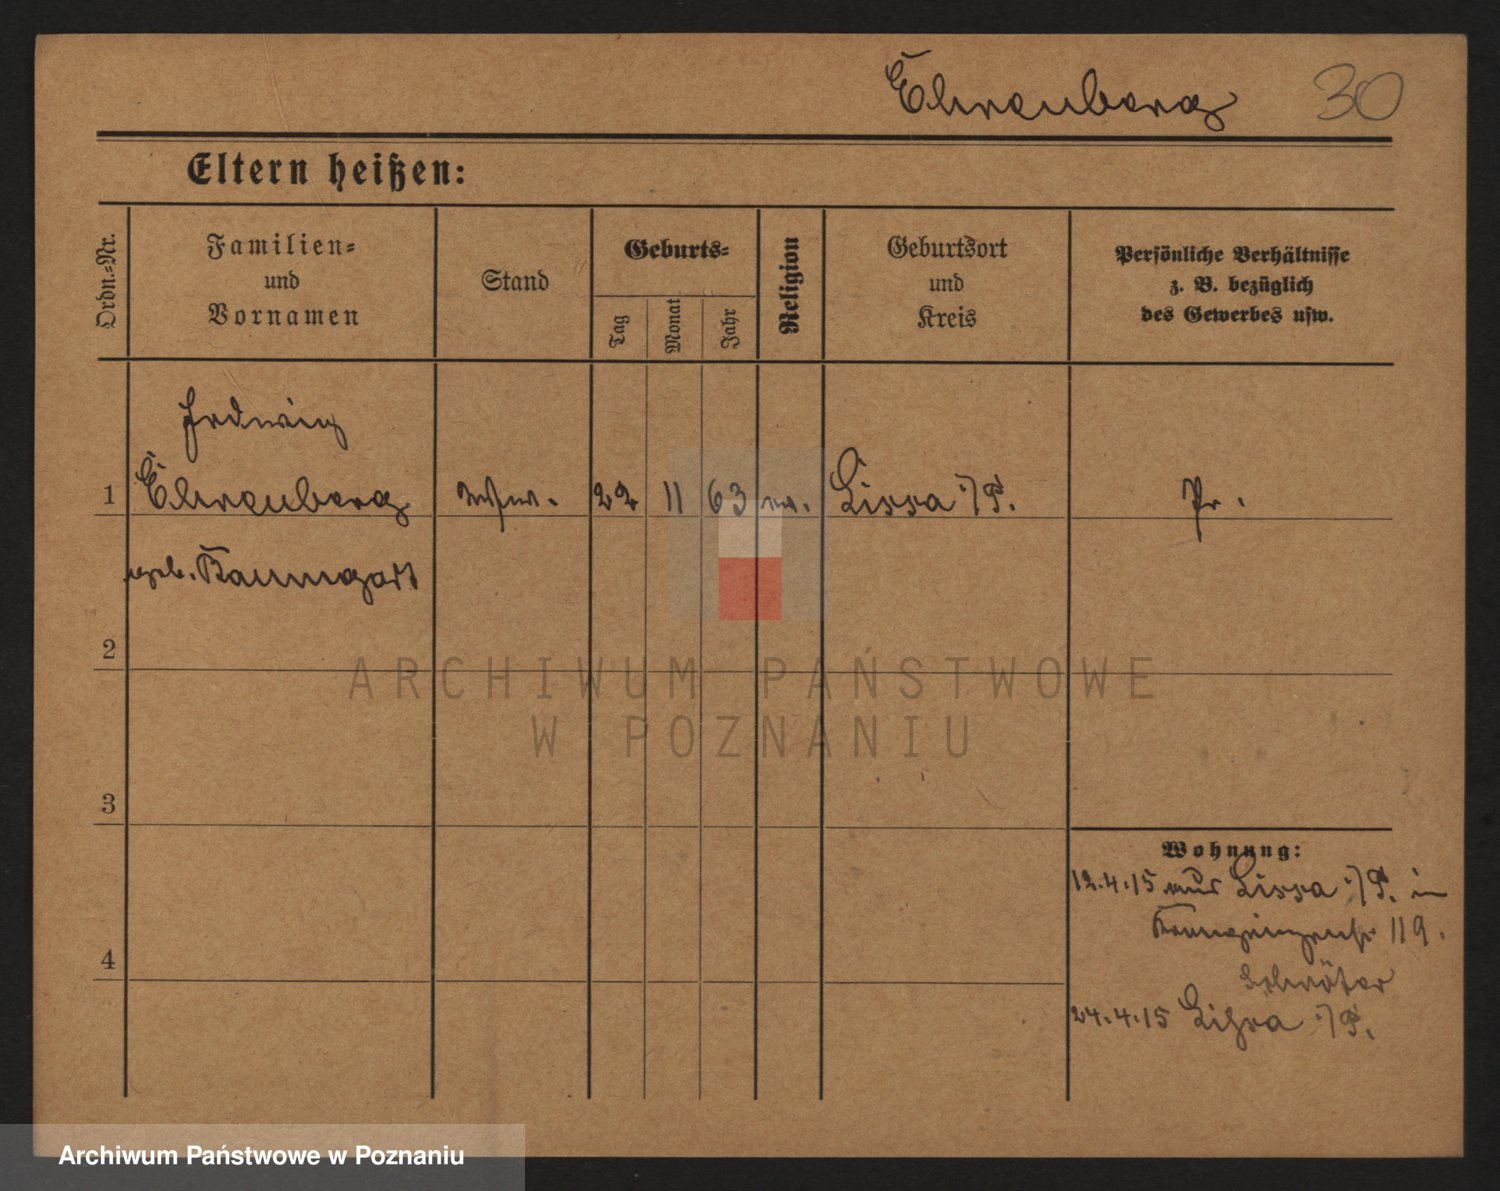 Ehrenberg 30
Eltern heißen:
Ordn.=Nr.
Familien=
und
Vornamen
Stand
Geburts=
Tag
Monat
Jahr
Religion
Geburtsort
und
Kreis
Persönliche Verhältnisse
z. B. bezüglich
des Gewerbes usw.
Hedwig
1 Ehrenberg 22 11 63 ev. Lissa i/P. Pr.
geb. Baumgart
2
3
4
ARCHIWUM PAŃSTWOWE
W POZNANIU
Wohnung:
12.4.15 aus Lissa i/P. in
Kronprinzenstr 119.
Schröter
24.4.15 Lissa i/P.
Archiwum Państwowe w Poznaniu